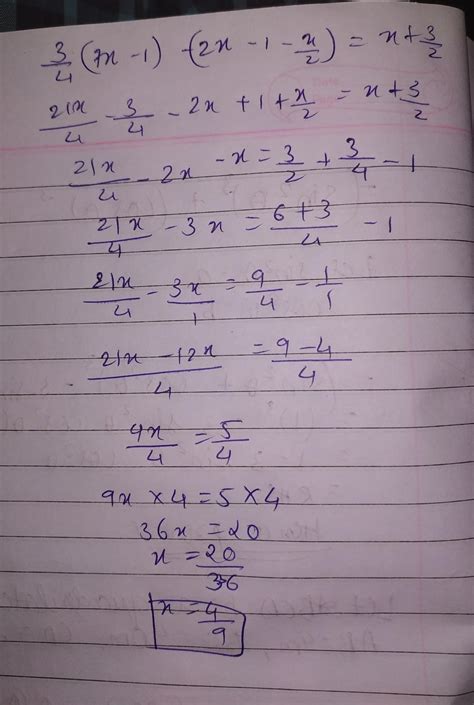 3/4 (7x-1) - (2x - 1 - x/2) = x + 3/2
21x/4 - 3/4 - 2x + 1 + x/2 = x + 3/2
21x/4 - 2x - x = 3/2 + 3/4 - 1
21x/4 - 3x = 6+3/4 - 1
21x/4 - 3x/1 = 9/4 - 1/1
21x - 12x/4 = 9-4/4
9x/4 = 5/4
9x × 4 = 5 × 4
36x = 20
x = 20/36
x = 4/9